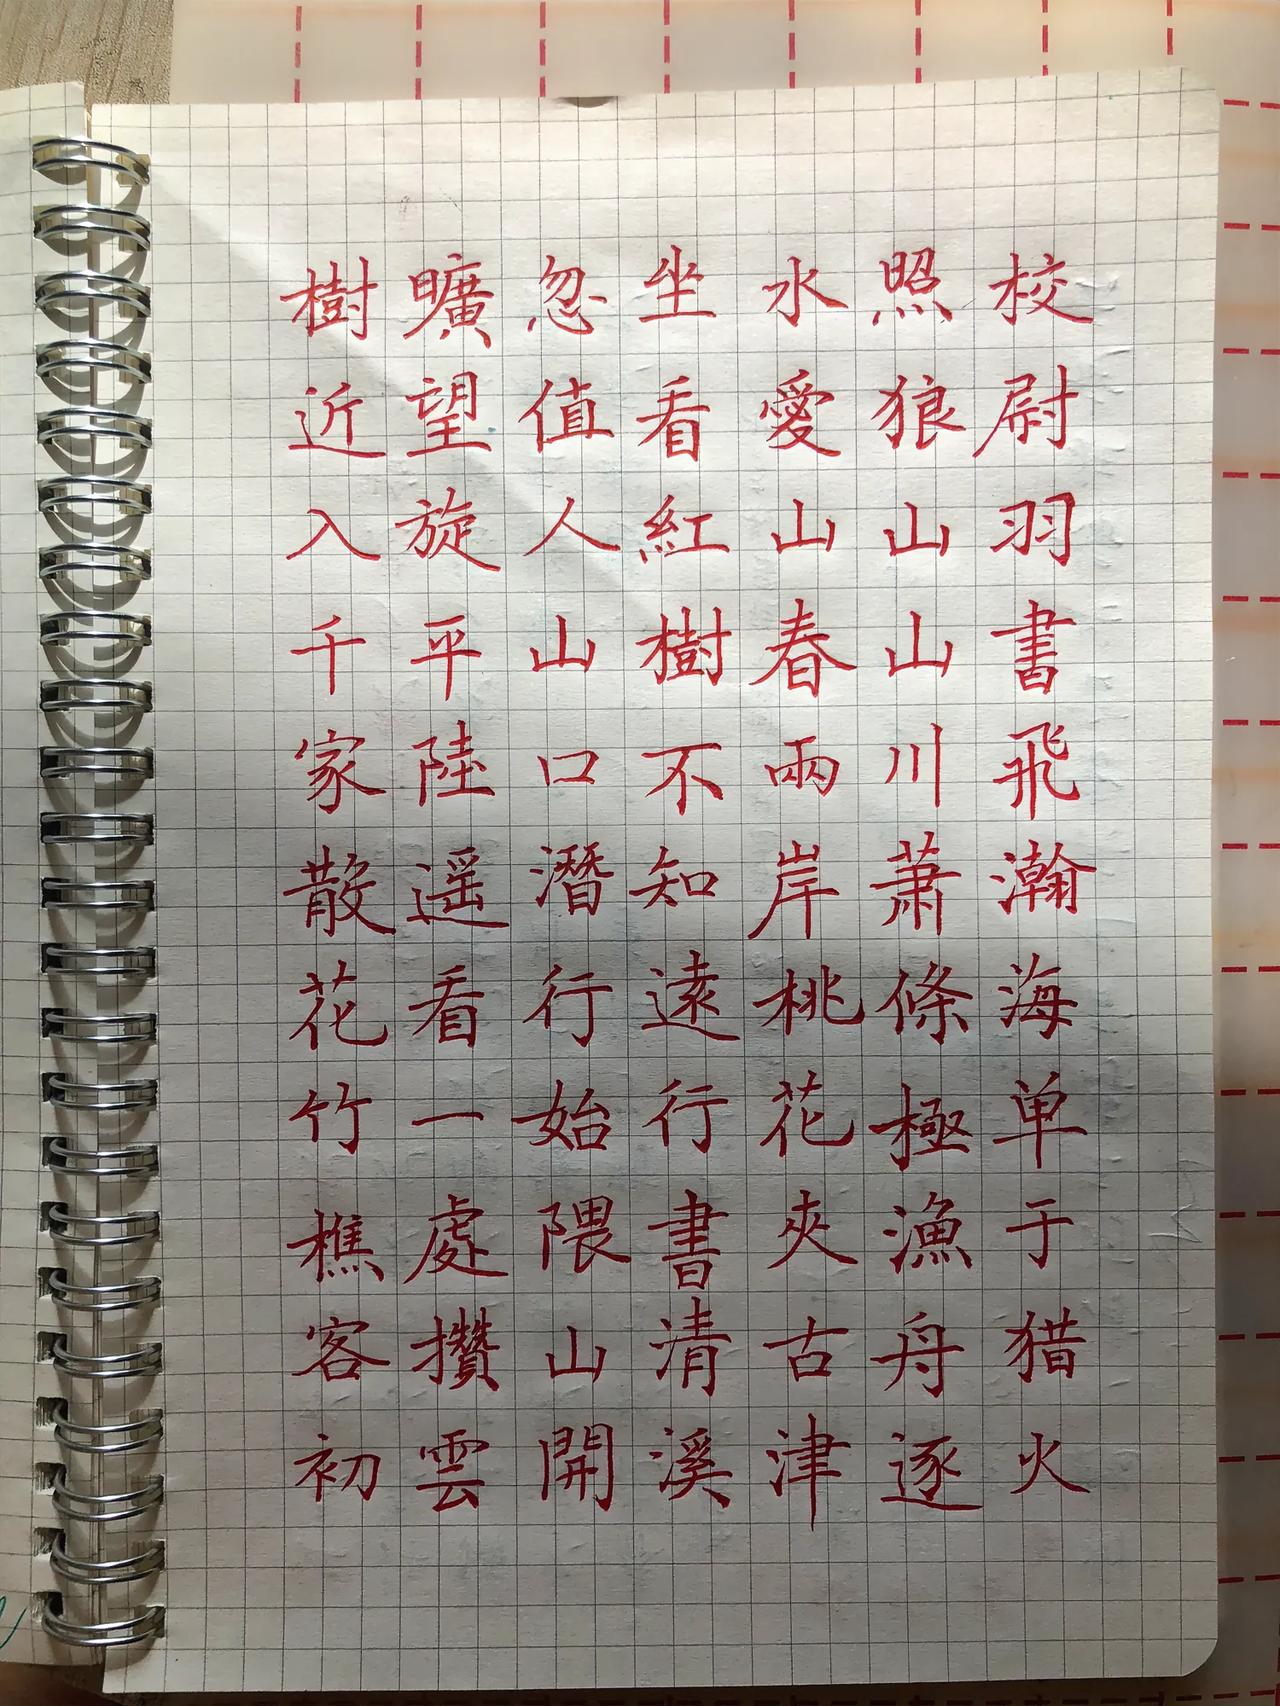 校尉羽書飛瀚海单于猎火
照狼山山川蕭條極漁舟逐
水愛山春兩岸桃花夾古津
坐看紅樹不知遠行書清溪
忽值人山口潛行始隈山開
曠望旋平陸遥看一處攢雲
樹近入千家散花竹樵客初